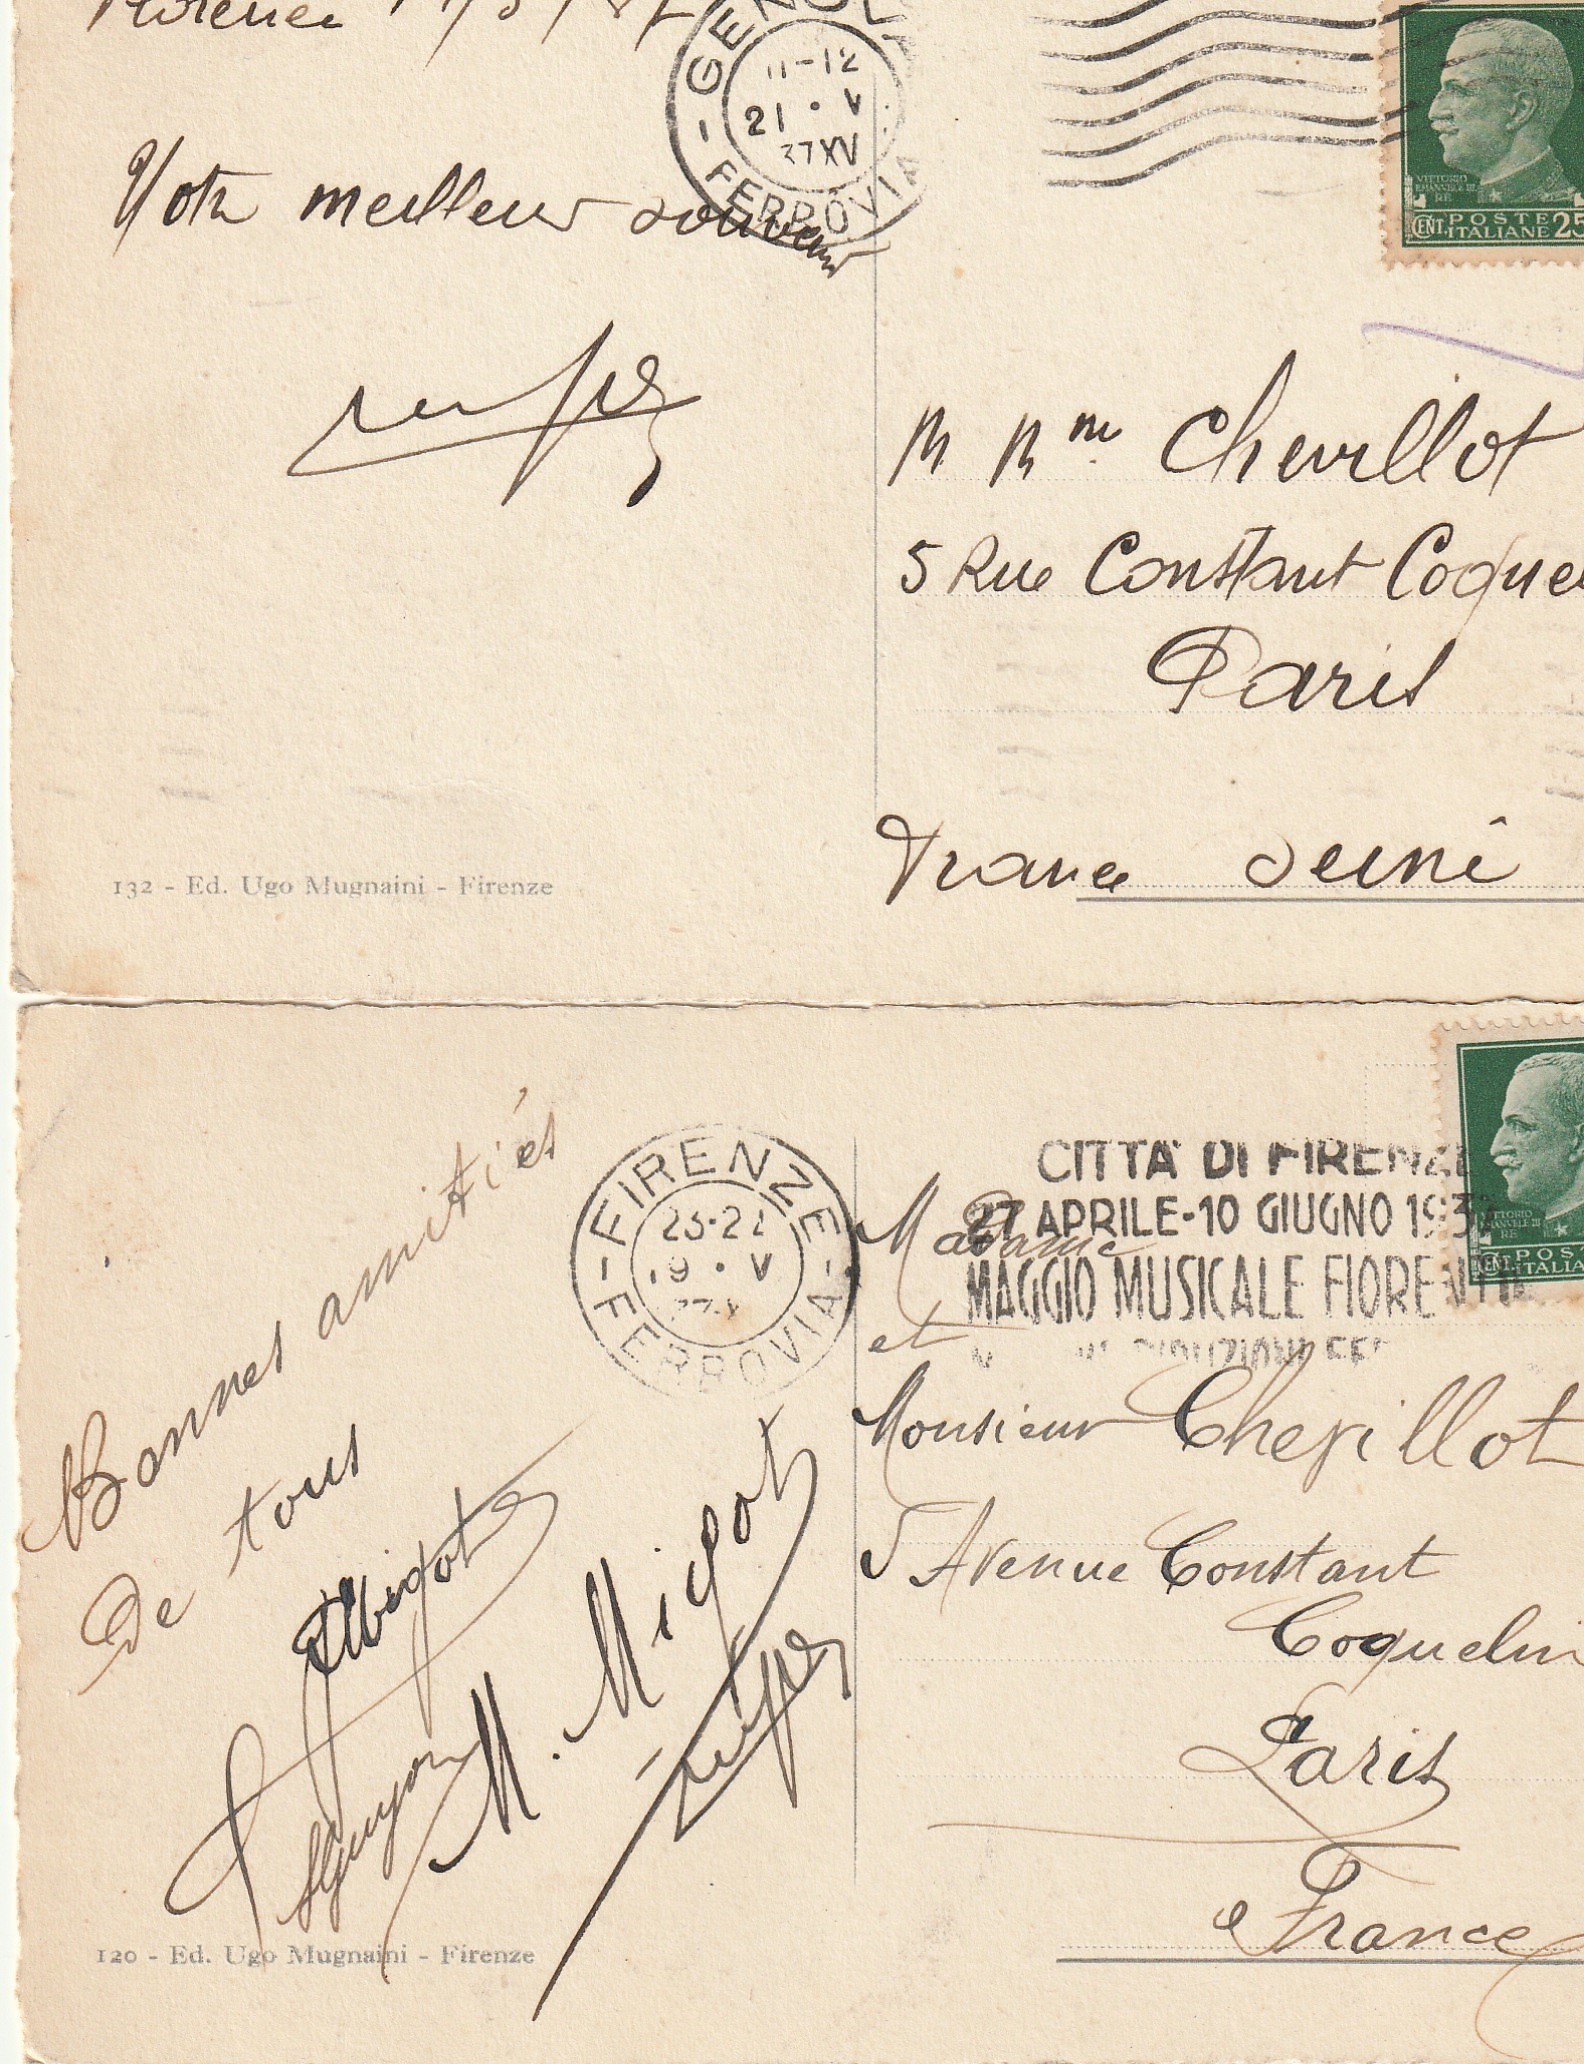 Florence
GENOVA
11-12
21 • V
37 XV
FERROVIA
VITTORIO
EMANUELE III
RE
CENT. POSTE 25
ITALIANE
Votre meilleur souvenir
M Mme Chevillot
5 Rue Constant Coquel
Paris
France Seine
132 - Ed. Ugo Mugnaini - Firenze
Bonnes amitiés
De tous
FIRENZE
19 • V
FERROVIA
CITTA DI FIRENZE
27 APRILE-10 GIUGNO 1937
MAGGIO MUSICALE FIORENTINO
VITTORIO
EMANUELE III
RE
CENT. POST
ITALIA
Madame
et
Monsieur Chevillot
5 Avenue Constant
Coquelin
Paris
France
M. Migot
Guyon
120 - Ed. Ugo Mugnaini - Firenze